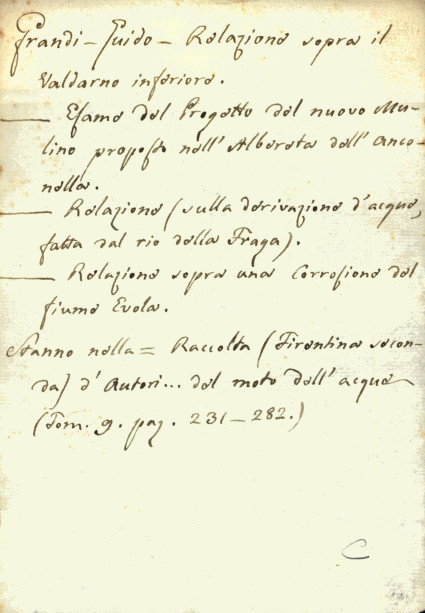 Grandi - Guido - Relazione sopra il
Valdarno inferiore.
—— Esame del Progetto del nuovo Mu-
lino proposto nell'Albereta dell'Anco-
nella.
—— Relazione (sulla derivazione d'acque,
fatta dal rio della Fraga).
—— Relazione sopra una Corrosione del
fiume Evola.
Stanno nella = Raccolta (Fiorentina secon-
da) d'Autori... del moto dell'acque
(Tom. 9. pag. 231 - 282.)
C